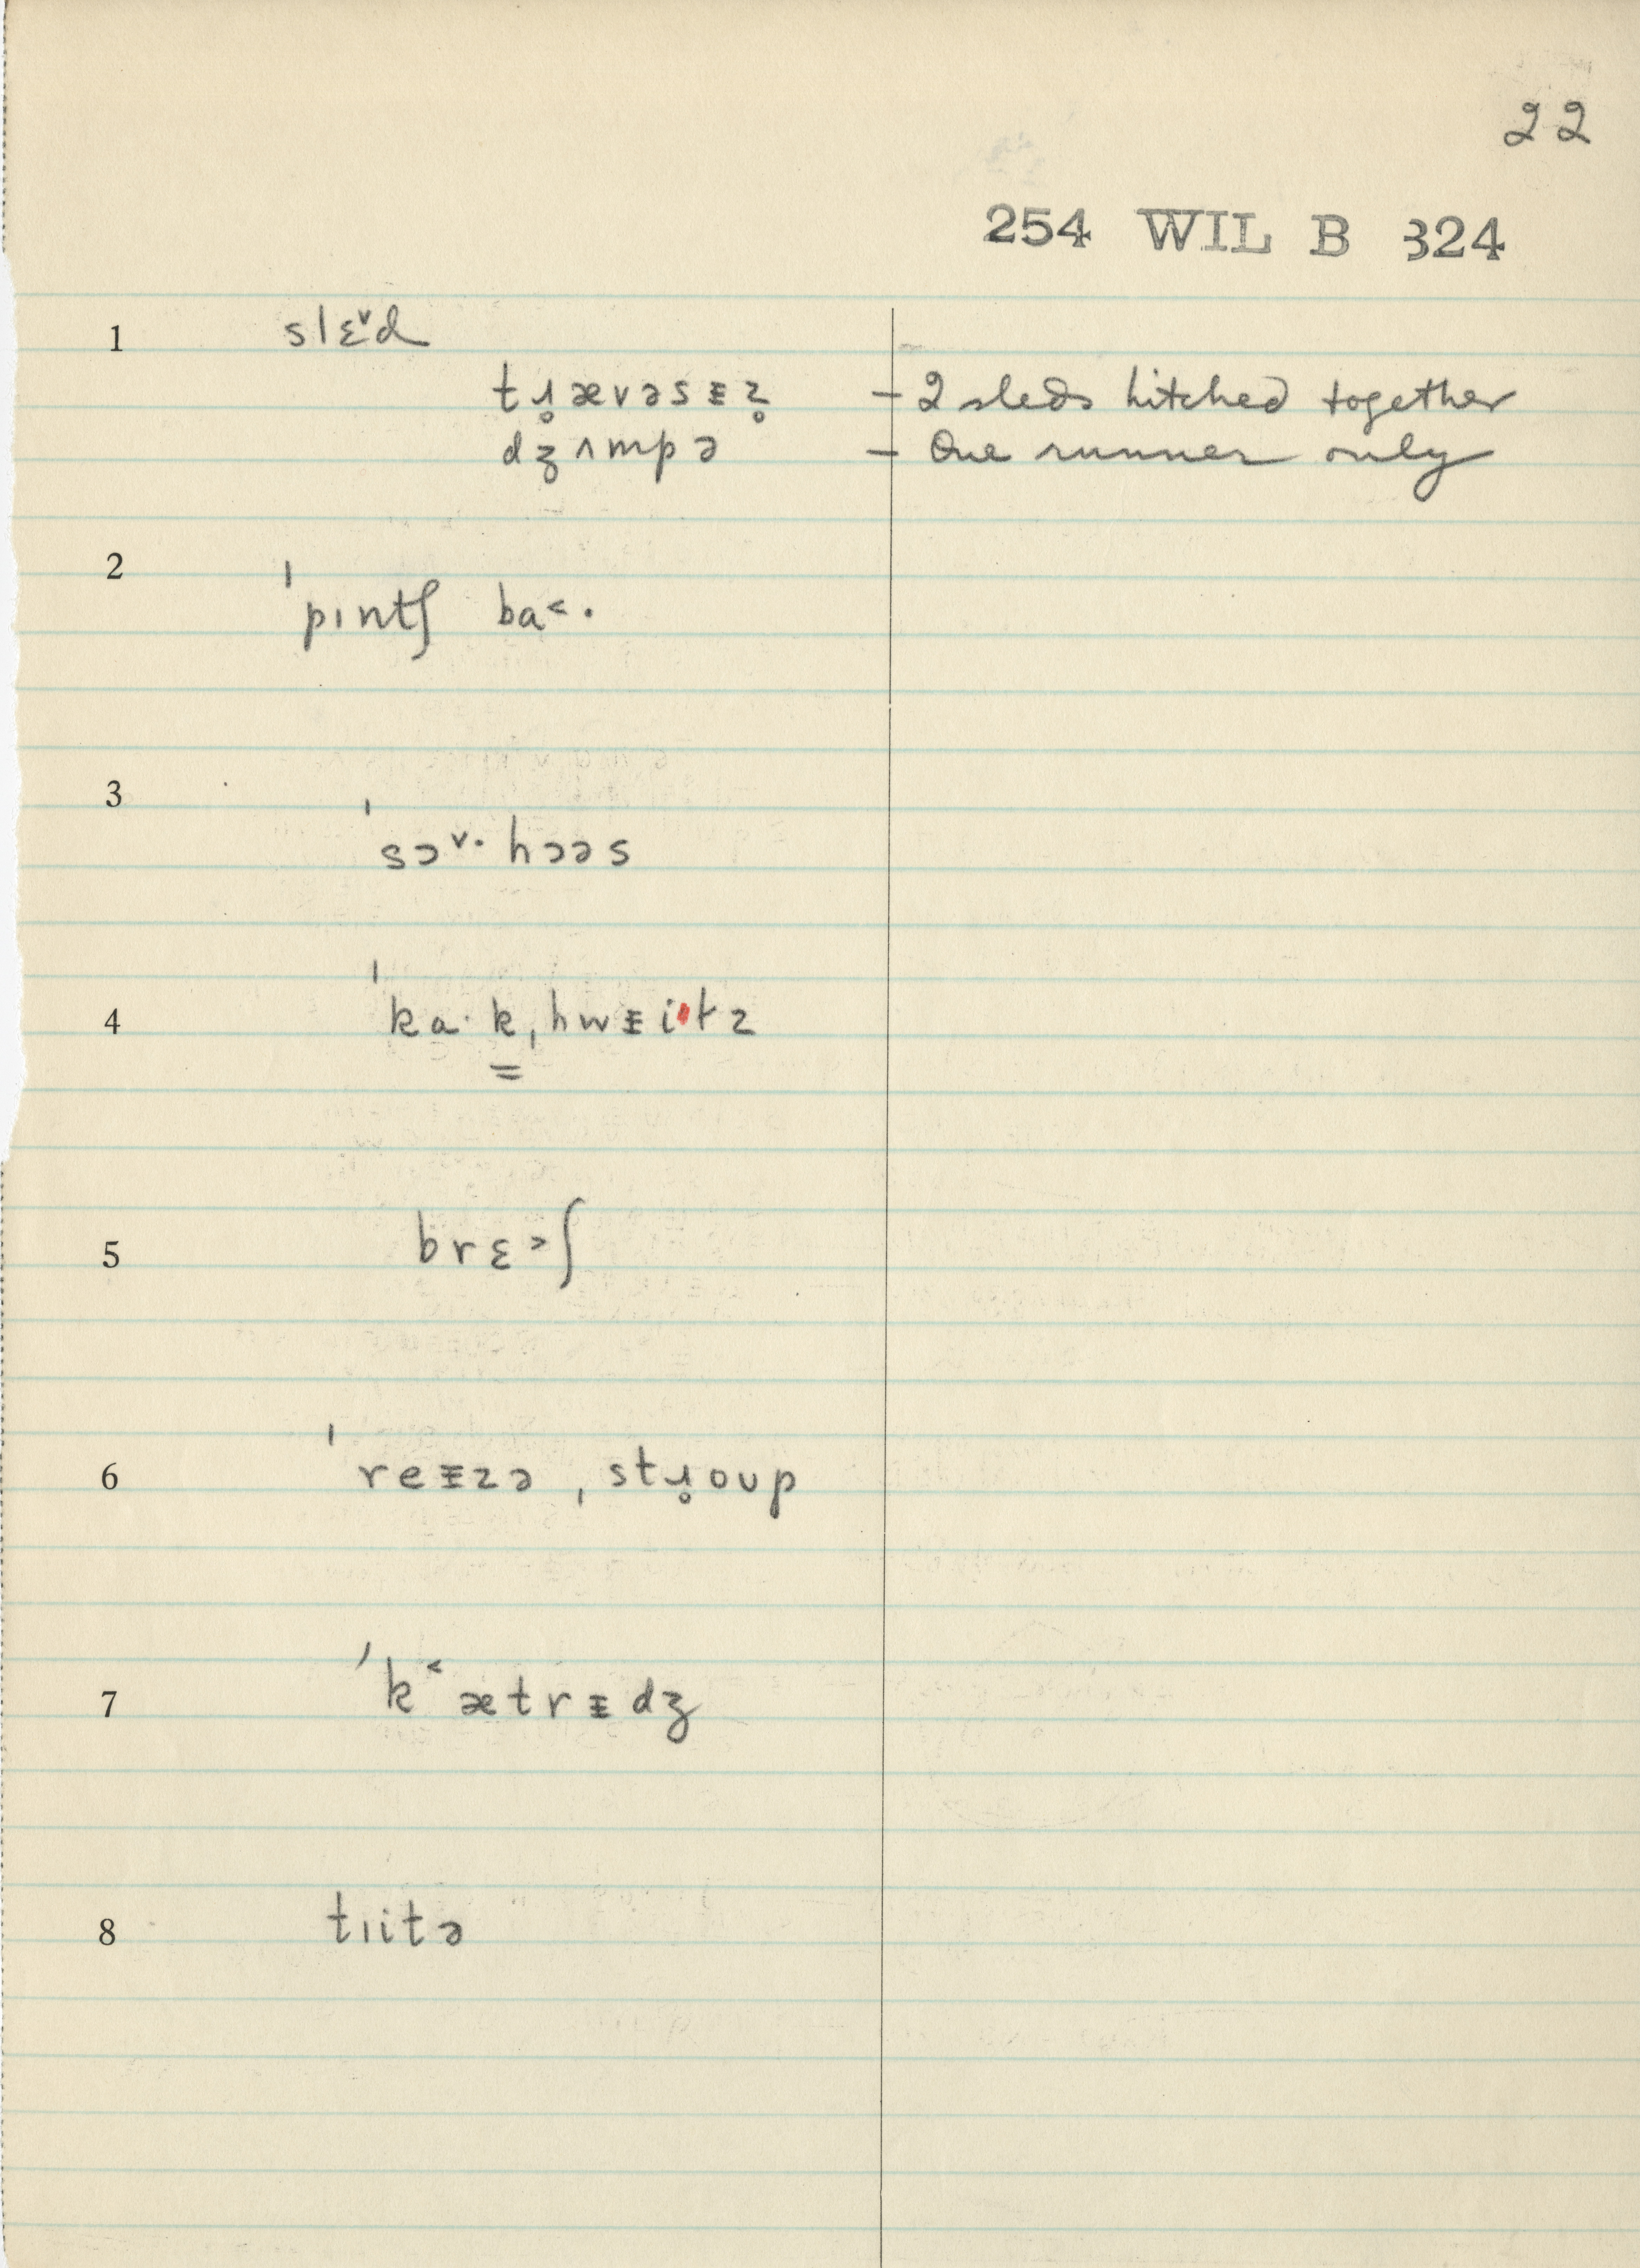 22
254 WIL B 324
1 slɛ˅d
tɹ̥ævəsᵻz̥ - 2 sleds hitched together
dʒʌmpə - One runner only
2 ˈpɪntʃ ba˂·
3 ˈsɔ˅· hɔəs
4 ˈka·k̳ˌhwᵻitz
5 brɛ˃ʃ
6 ˈreᵻzə ˌstɹ̥oup
7 ˈk˂ætrᵻdʒ
8 tɪitə